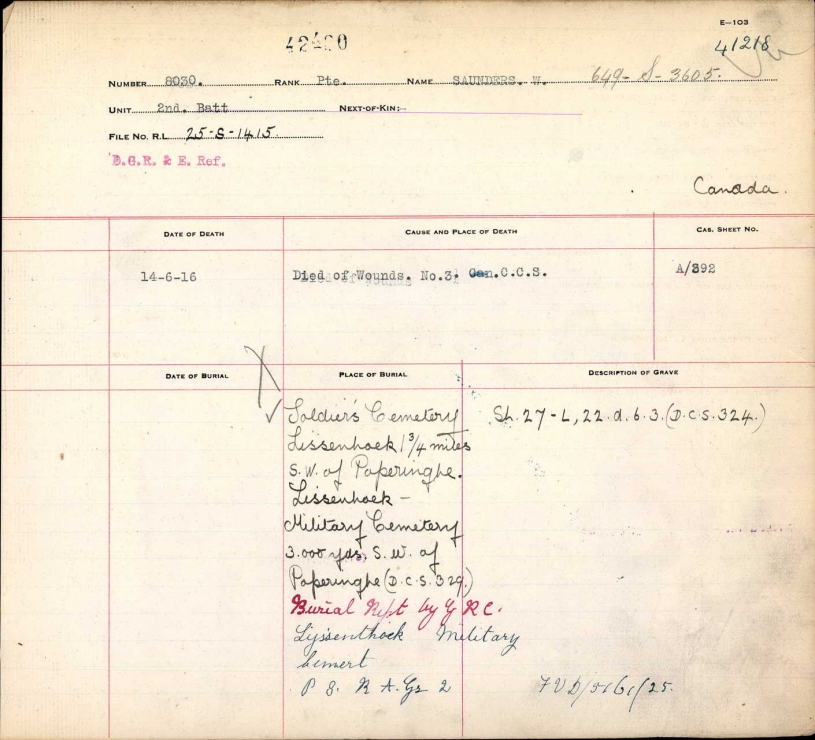 E-103
42400
41218
NUMBER 8030. RANK Pte. NAME SAUNDERS. W. 649-S-3605.
UNIT 2nd. Batt NEXT-OF-KIN:-
FILE NO. R.L. 25-S-1415.
D.G.R. & E. Ref.
Canada.
DATE OF DEATH CAUSE AND PLACE OF DEATH CAS. SHEET NO.
14-6-16 Died of Wounds. No.3. Can.C.C.S. A/392
DATE OF BURIAL PLACE OF BURIAL DESCRIPTION OF GRAVE
Soldier's Cemetery Sh. 27-L, 22.d.6.3.(D.C.S.324.)
Lissenhoek 1 3/4 miles
S.W. of Poperinghe.
Lissenhoek -
Military Cemetery
3.000 yds. S.W. of
Poperinghe (D.C.S.329.)
Burial Rept by G R C.
Lijssenthoek Military
Cemert
P 8. R A. Gr 2